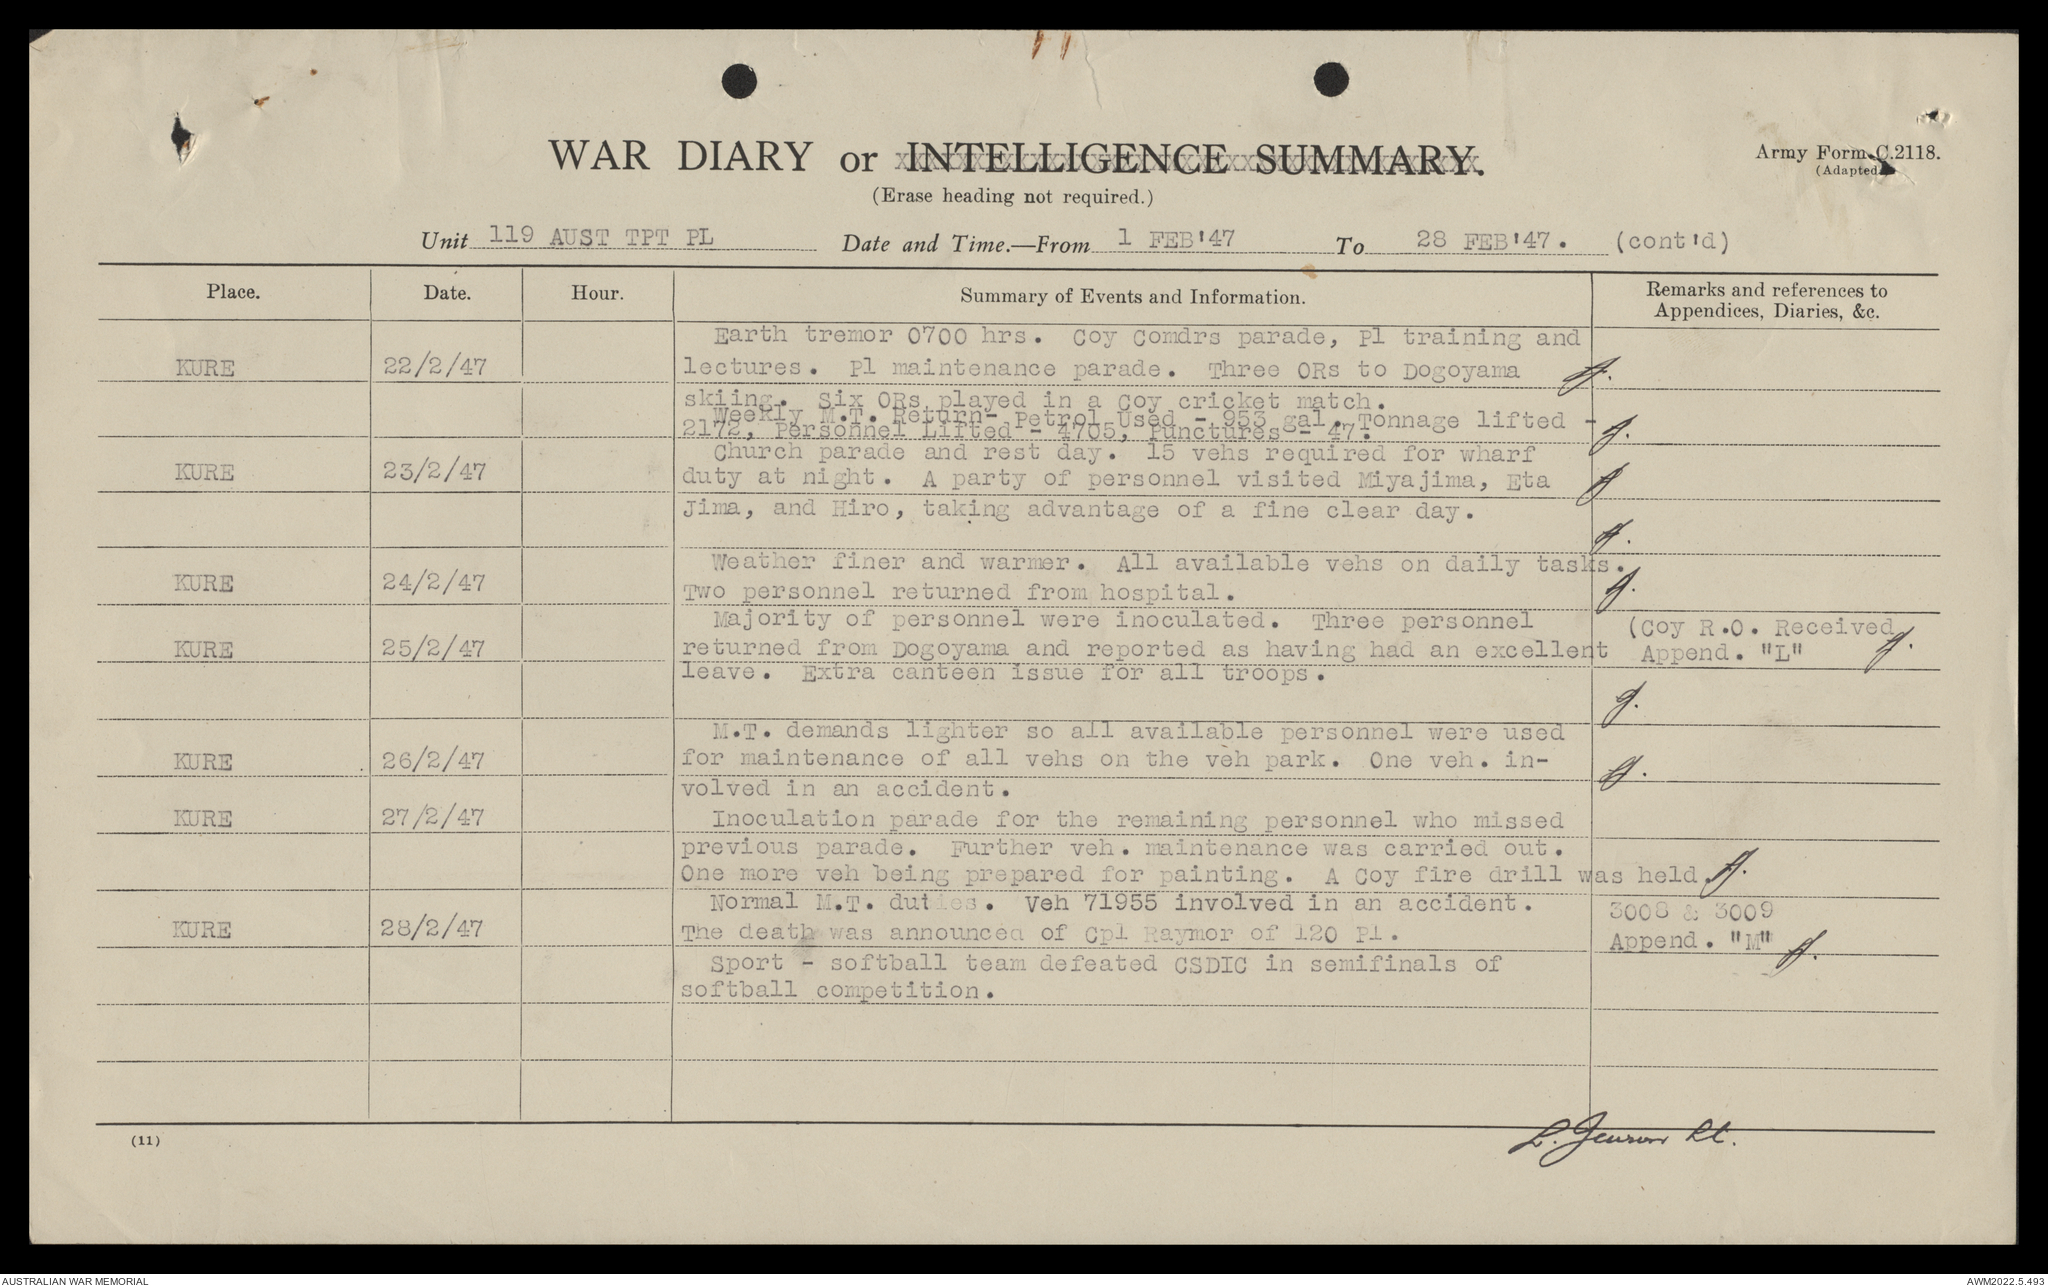 WAR DIARY or INTELLIGENCE SUMMARY.
(Erase heading not required.)
Army Form C.2118.
(Adapted)
Unit 119 AUST TPT PL Date and Time.—From 1 FEB'47 To 28 FEB'47. (cont'd)
Place. Date. Hour. Summary of Events and Information. Remarks and references to
Appendices, Diaries, &c.
Earth tremor 0700 hrs. Coy Comdrs parade, Pl training and
KURE 22/2/47 lectures. Pl maintenance parade. Three ORs to Dogoyama
skiing. Six ORs played in a Coy cricket match.
Weekly M.T. Return- Petrol Used - 953 gal. Tonnage lifted -
2172, Personnel Lifted - 4705, Punctures - 47.
Church parade and rest day. 15 vehs required for wharf
KURE 23/2/47 duty at night. A party of personnel visited Miyajima, Eta
Jima, and Hiro, taking advantage of a fine clear day.
Weather finer and warmer. All available vehs on daily tasks.
KURE 24/2/47 Two personnel returned from hospital.
Majority of personnel were inoculated. Three personnel (Coy R.O. Received
KURE 25/2/47 returned from Dogoyama and reported as having had an excellent Append. "L"
leave. Extra canteen issue for all troops.
M.T. demands lighter so all available personnel were used
KURE 26/2/47 for maintenance of all vehs on the veh park. One veh. in-
volved in an accident.
KURE 27/2/47 Inoculation parade for the remaining personnel who missed
previous parade. Further veh. maintenance was carried out.
One more veh being prepared for painting. A Coy fire drill was held
Normal M.T. duties. Veh 71955 involved in an accident. 3008 & 3009
KURE 28/2/47 The death was announced of Cpl Raymor of 120 Pl. Append. "M"
Sport - softball team defeated CSDIC in semifinals of
softball competition.
(11)
L. Lt.
AUSTRALIAN WAR MEMORIAL
AWM2022.5.493